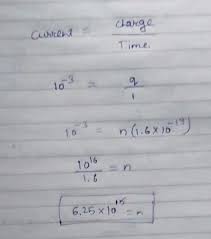 Current = Charge / Time.
10^-3 = q / 1
10^-3 = n(1.6×10^-19)
10^16 / 1.6 = n
6.25×10^15 = n